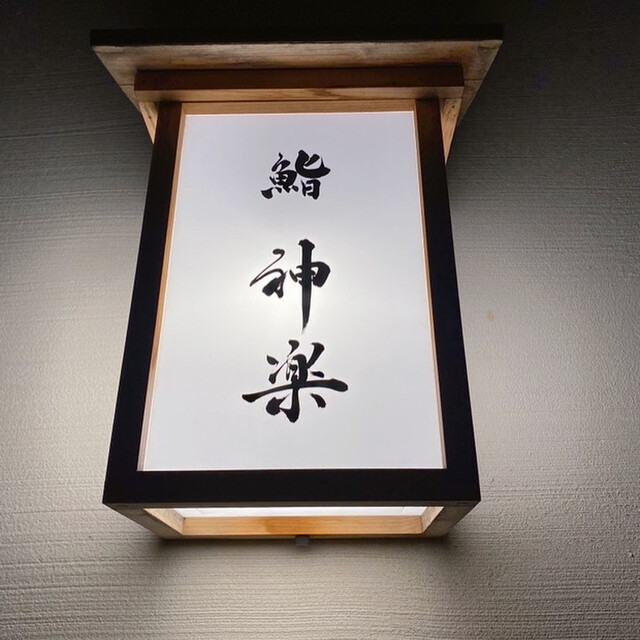 鮨 神楽